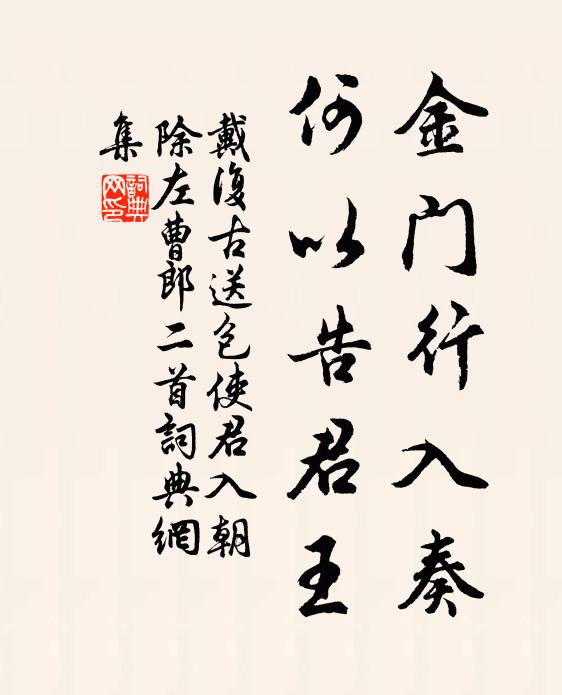 金門行入奏
何以告君王
戴復古送包使君入朝
除左曹郎二首詞典網
集
詞典
网印